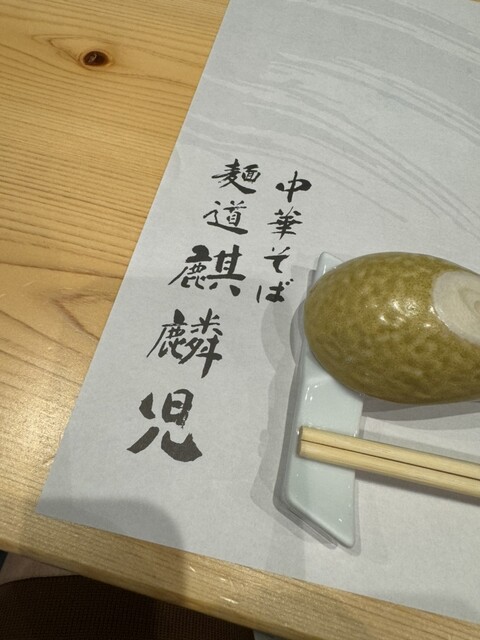 中華そば
麺道麒麟児